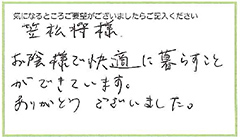 気になるところご要望がございましたらご記入ください
笠松将様
お陰様で快適に暮らすこと
ができています。
ありがとうございました。